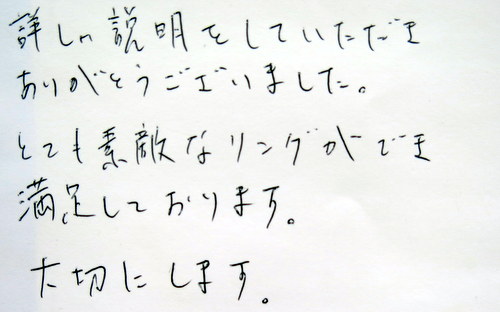 詳しい説明をしていただき
ありがとうございました。
とても素敵なリングができ
満足しております。
大切にします。